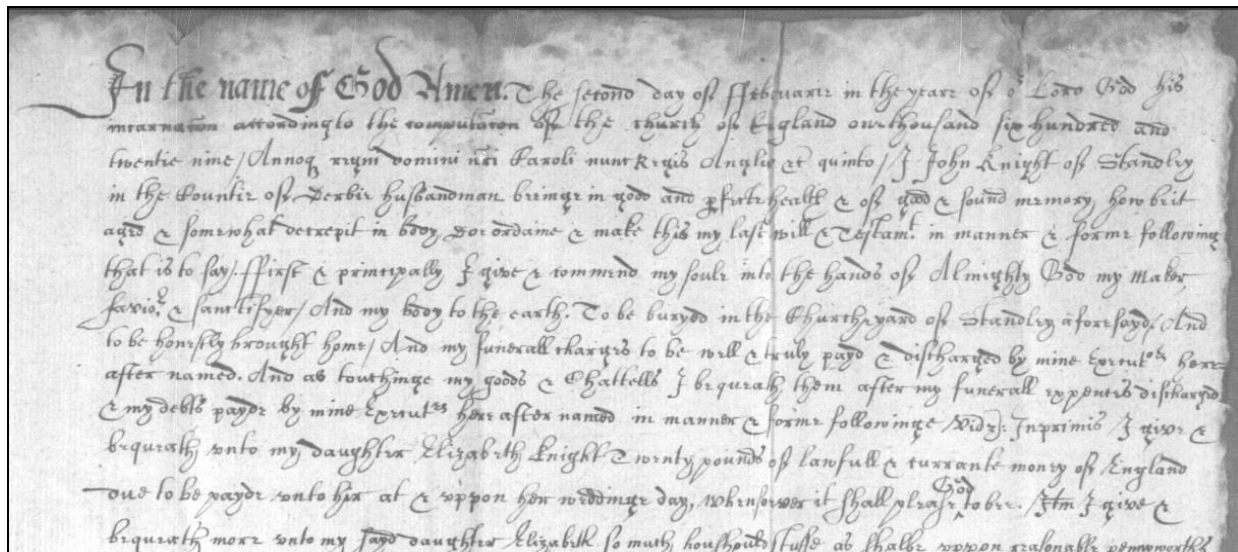 In the name of God Amen. The second day of ffebruarie in the yeare of or Lord God his
incarnacon accordinge to the computacon of the church of England one thousand six hundred and
twentie nine / Annoq regni domini nri Caroli nunc Regis Anglie &c quinto / I John Knight of Standley
in the Countie of Derbie husbandman beeinge in good and pfecte health & of good & sound memory, howbeit
aged & somewhat decrepit in body doe ordaine & make this my last will & Testamt. in manner & forme following
that is to say: ffirst & principally I give & commend my soule into the hands of Almighty God my Maker
savior. & sanctifyer / And my body to the earth. To be buryed in the Church yard of Standley aforesayd / And
to be honestly brought home / And my funerall charges to be well & truly payd & discharged by mine Executors heere=
after named. And as touchinge my goods & Chattells I bequeath them after my funerall expences discharged
& my debts payde by mine Executrs heere after named in manner & forme followinge / Vidz: Inprimis I give &
bequeath unto my daughter Elizabeth Knight Twenty pounds of lawfull & currante money of England
due to be payde unto hir at & uppon her weddinge day, whensoever it shall please God to bee. / Itm I give &
bequeath more unto my sayd daughter Elizabeth so much houshould stuffe as shalbe uppon reasonable pennworths